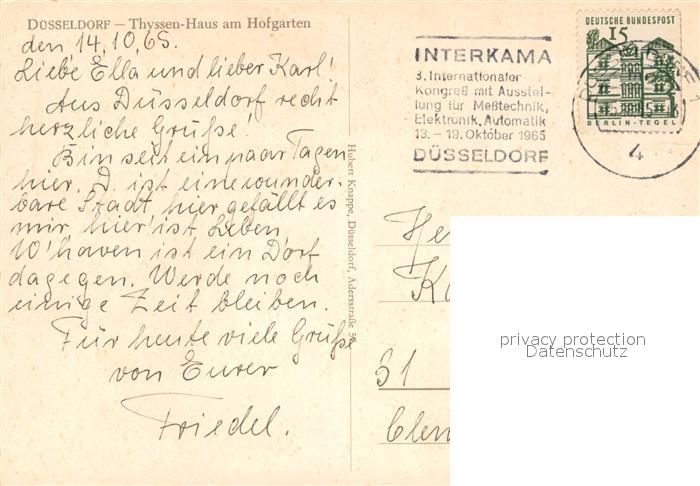 DÜSSELDORF – Thyssen-Haus am Hofgarten
den 14.10.65.
Liebe Ella und lieber Karl!
Aus Düsseldorf recht
herzliche Grüße!
Bin seit ein paar Tagen
hier. D. ist eine wunder-
bare Stadt, hier gefällt es
mir, hier ist Leben,
W'haven ist ein Dorf
dagegen. Werde noch
einige Zeit bleiben.
Für heute viele Grüße
von Eurer
Friedel.
Hubert Knappe, Düsseldorf, Adersstraße
INTERKAMA
3. Internationaler
Kongreß mit Ausstel-
lung für Meßtechnik,
Elektronik, Automatik
13. – 19. Oktober 1965
DÜSSELDORF
DEUTSCHE BUNDESPOST
15
BERLIN-TEGEL
4
He
K
51
privacy protection
Datenschutz